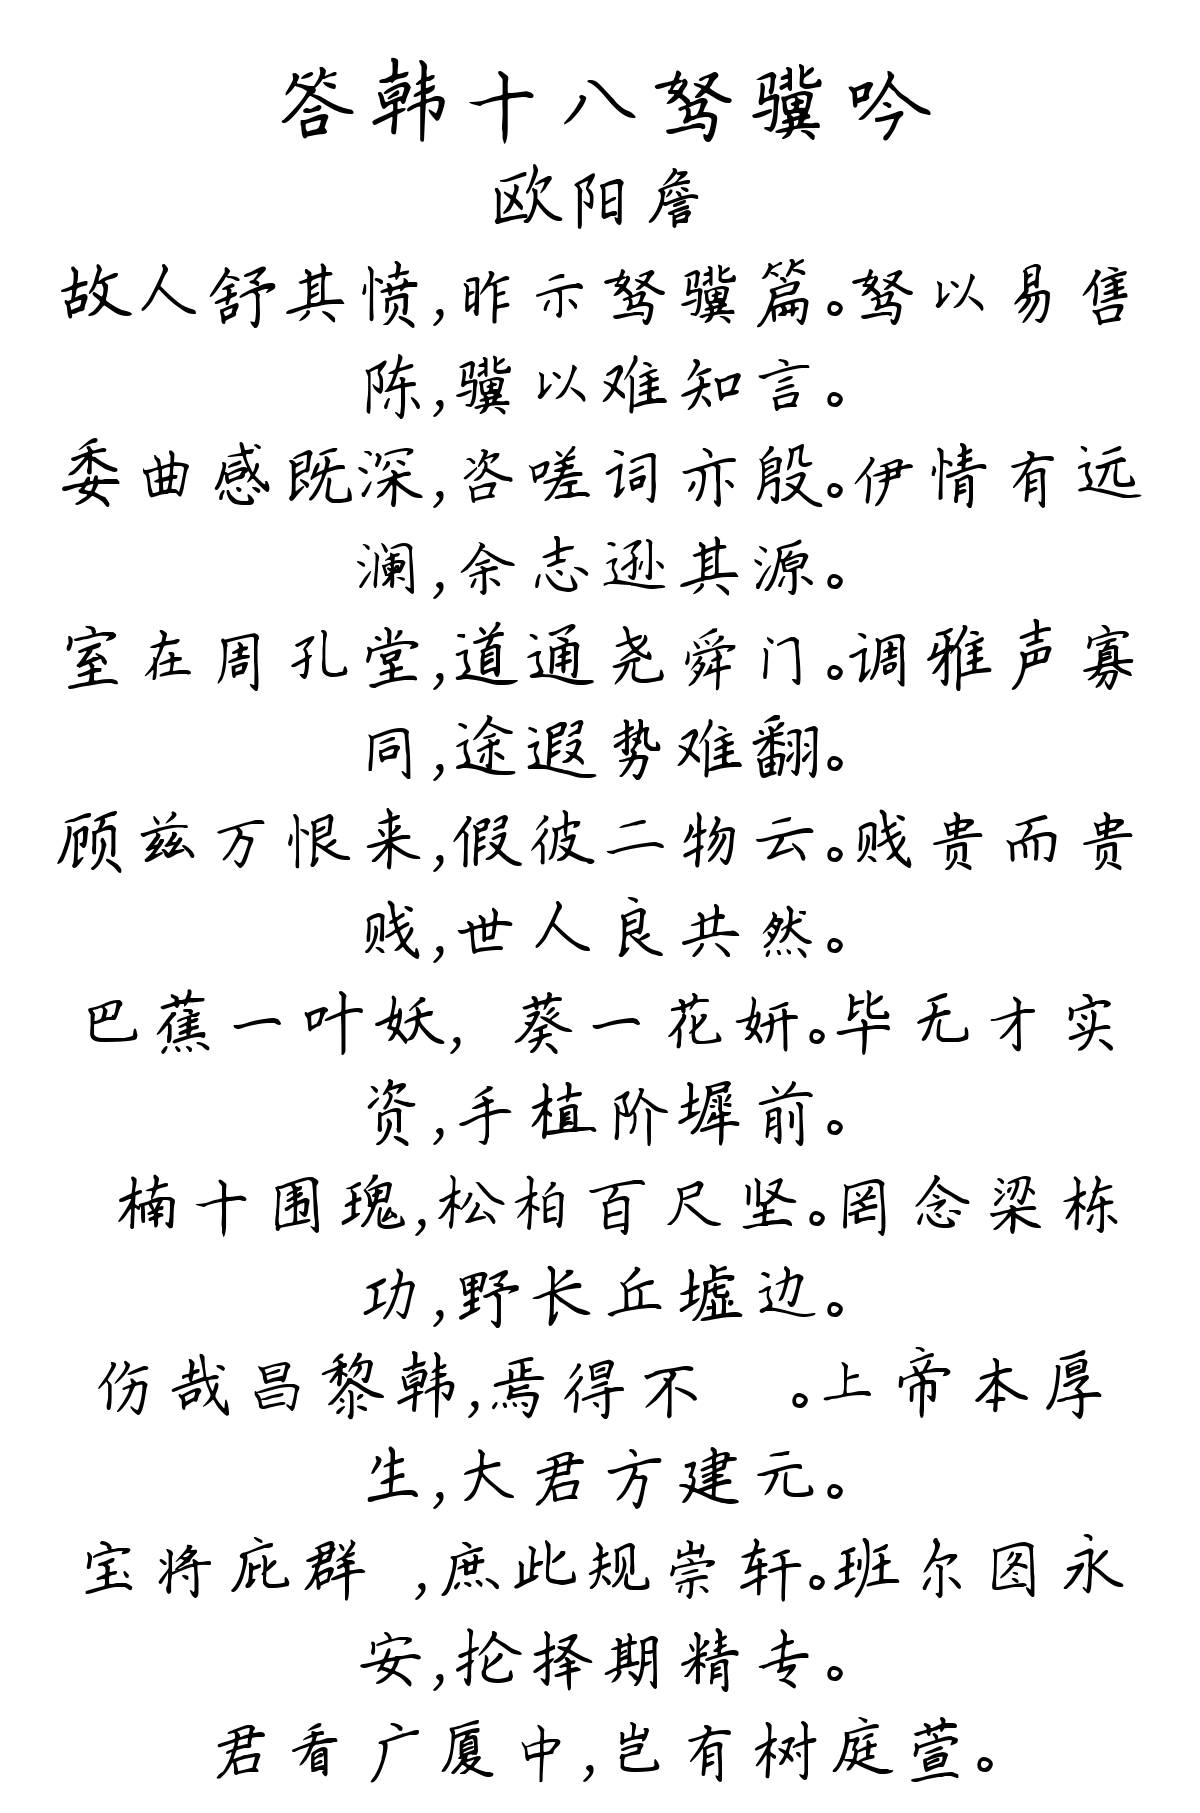 答韩十八驽骥吟
欧阳詹
故人舒其愤,昨示驽骥篇。驽以易售
陈,骥以难知言。
委曲感既深,咨嗟词亦殷。伊情有远
澜,余志逊其源。
室在周孔堂,道通尧舜门。调雅声寡
同,途遐势难翻。
顾兹万恨来,假彼二物云。贱贵而贵
贱,世人良共然。
巴蕉一叶妖, 葵一花妍。毕无才实
资,手植阶墀前。
楠十围瑰,松柏百尺坚。罔念梁栋
功,野长丘墟边。
伤哉昌黎韩,焉得不 。上帝本厚
生,大君方建元。
宝将庇群 ,庶此规崇轩。班尔图永
安,抡择期精专。
君看广厦中,岂有树庭萱。